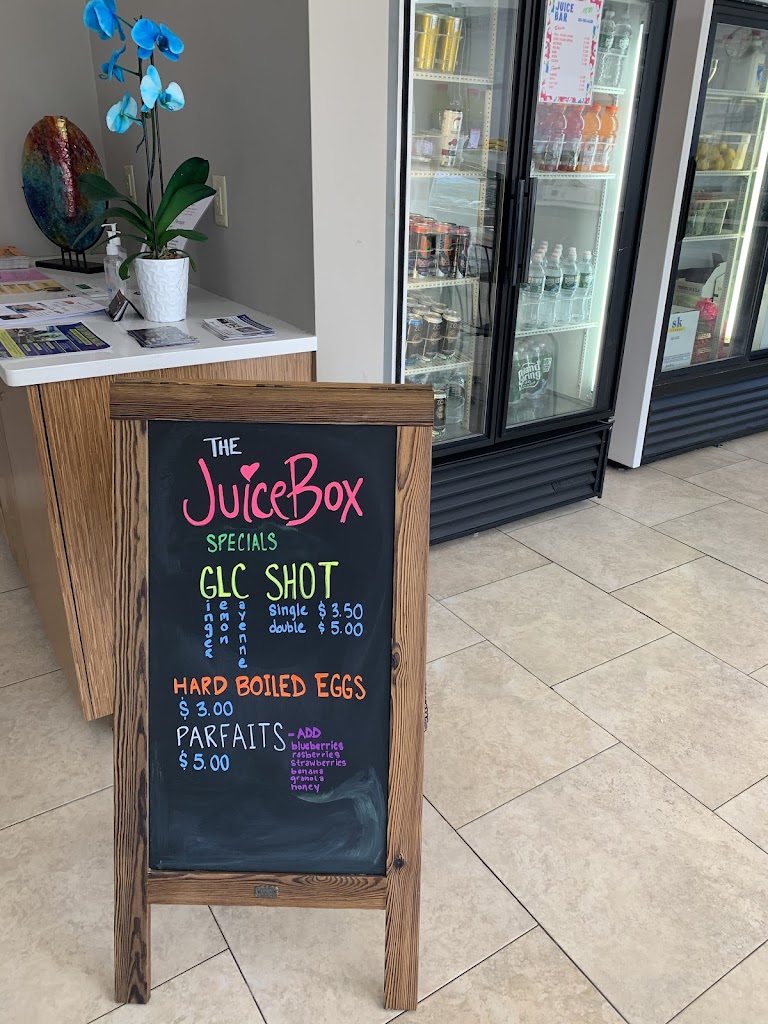 JUICE
BAR
THE
JuiceBox
SPECIALS
GLC SHOT
inger emon ayenne
single $3.50
double $5.00
HARD BOILED EGGS
$3.00
PARFAITS - ADD
blueberries
rasberries
strawberries
banana
granola
honey
$5.00
sk